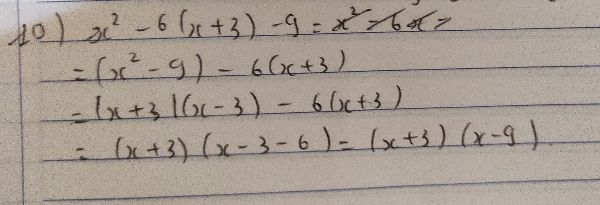 10) x² - 6(x+3) - 9 = x² - 6x =
= (x² - 9) - 6(x+3)
= (x+3)(x-3) - 6(x+3)
= (x+3) (x-3-6) = (x+3) (x-9)